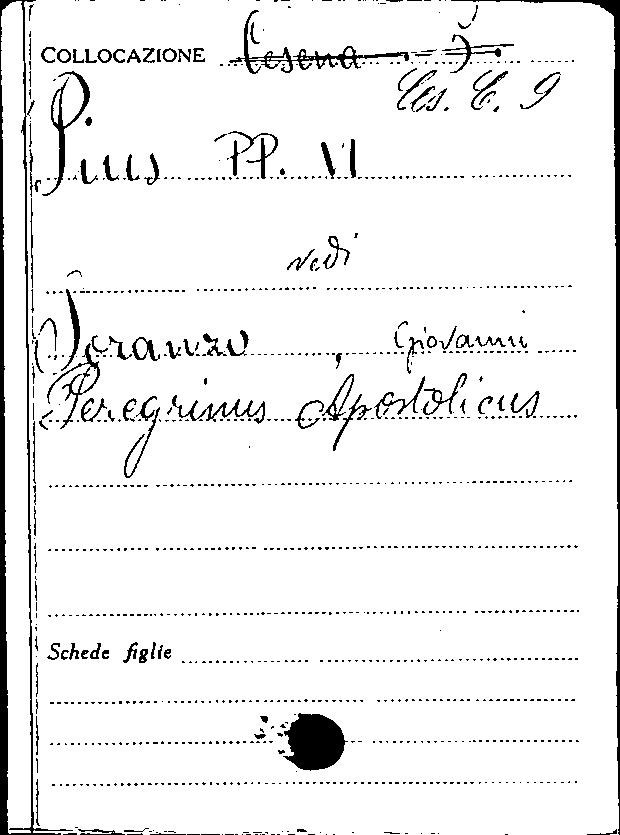 COLLOCAZIONE Cesena 5.
Ces. C. 9
Pius PP. VI
vedi
Soranzo, Giovanni
Peregrinus Apostolicus
Schede figlie